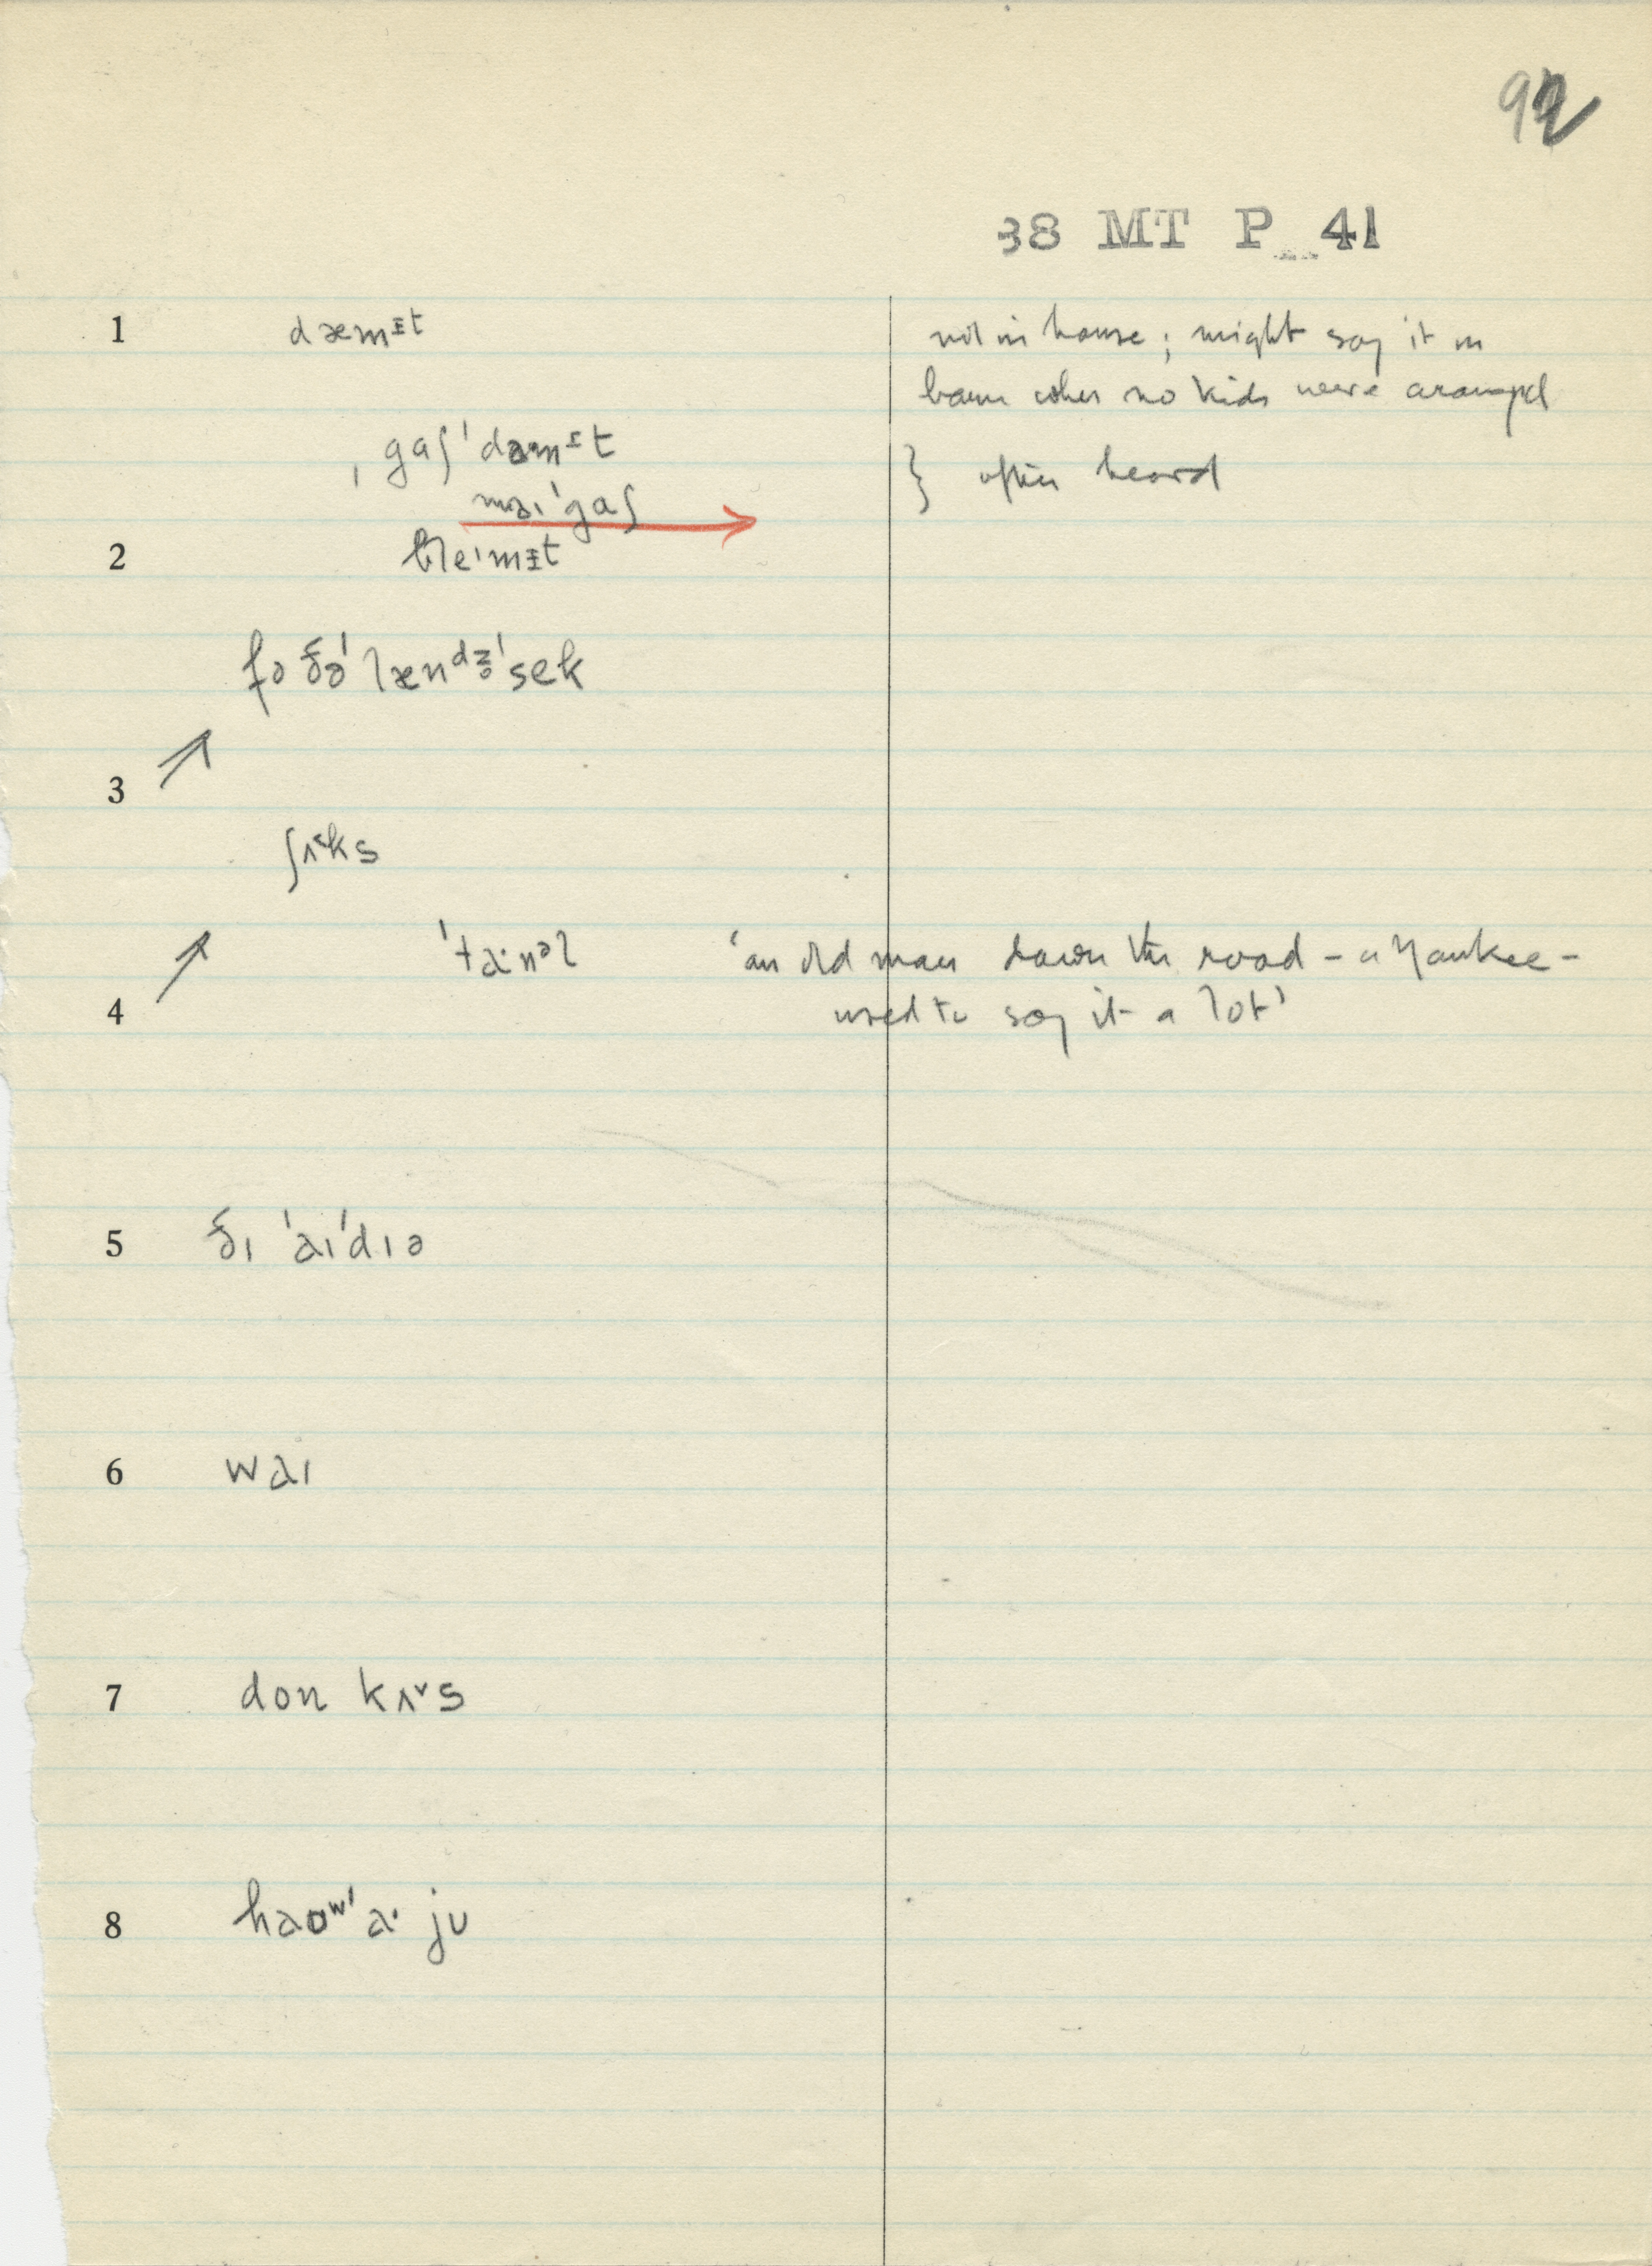 92
38 MT P 41
1 dæmᵻt not in house; might say it in
barn when no kids were around
ˌgaʃˈdæmᵻt } often heard
maɪˈgaʃ
2 bleˈmᵻt
fə ðəˈlænᵈz̥ˈsek
3 ↗
ʃʌ˂ks
ˈta·nəl ‘an old man down the road – a Yankee –
4 ↗ used to say it a lot’
5 ðɪ ˈaɪˈdɪə
6 waɪ
7 don kʌ˅s
8 haʊʷˈa· jʊ